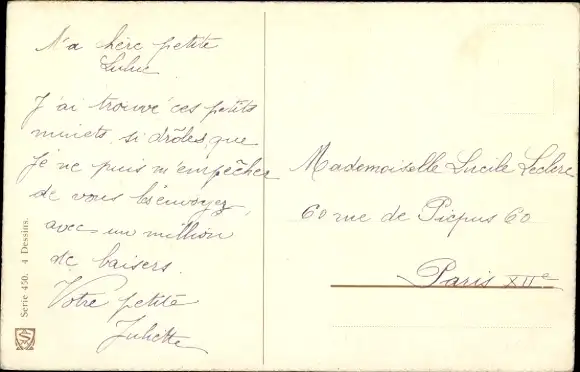 Ma chère petite
Lulu
J'ai trouvé ces petits
minets si drôles que
je ne puis m'empêcher
de vous les envoyez
avec un million
de baisers.
Votre petite
Juliette
Mademoiselle Lucile Leclerc
60 rue de Picpus 60
Paris XIIe
Serie 450. 4 Dessins.